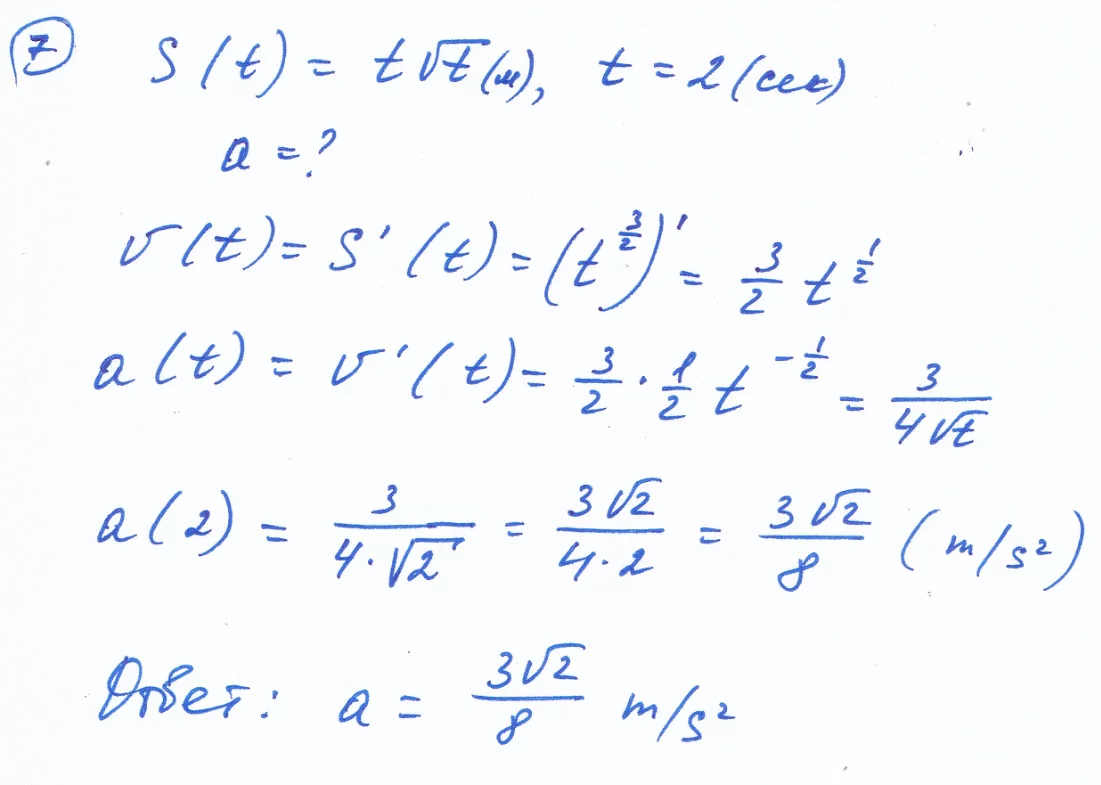 ⑦ S(t) = t√t (м), t = 2 (сек)
a = ?
v(t) = S'(t) = (t^{3/2})' = 3/2 t^{1/2}
a(t) = v'(t) = 3/2 · 1/2 t^{-1/2} = 3/(4√t)
a(2) = 3/(4·√2) = 3√2/(4·2) = 3√2/8 (m/s²)
Ответ: a = 3√2/8 m/s²